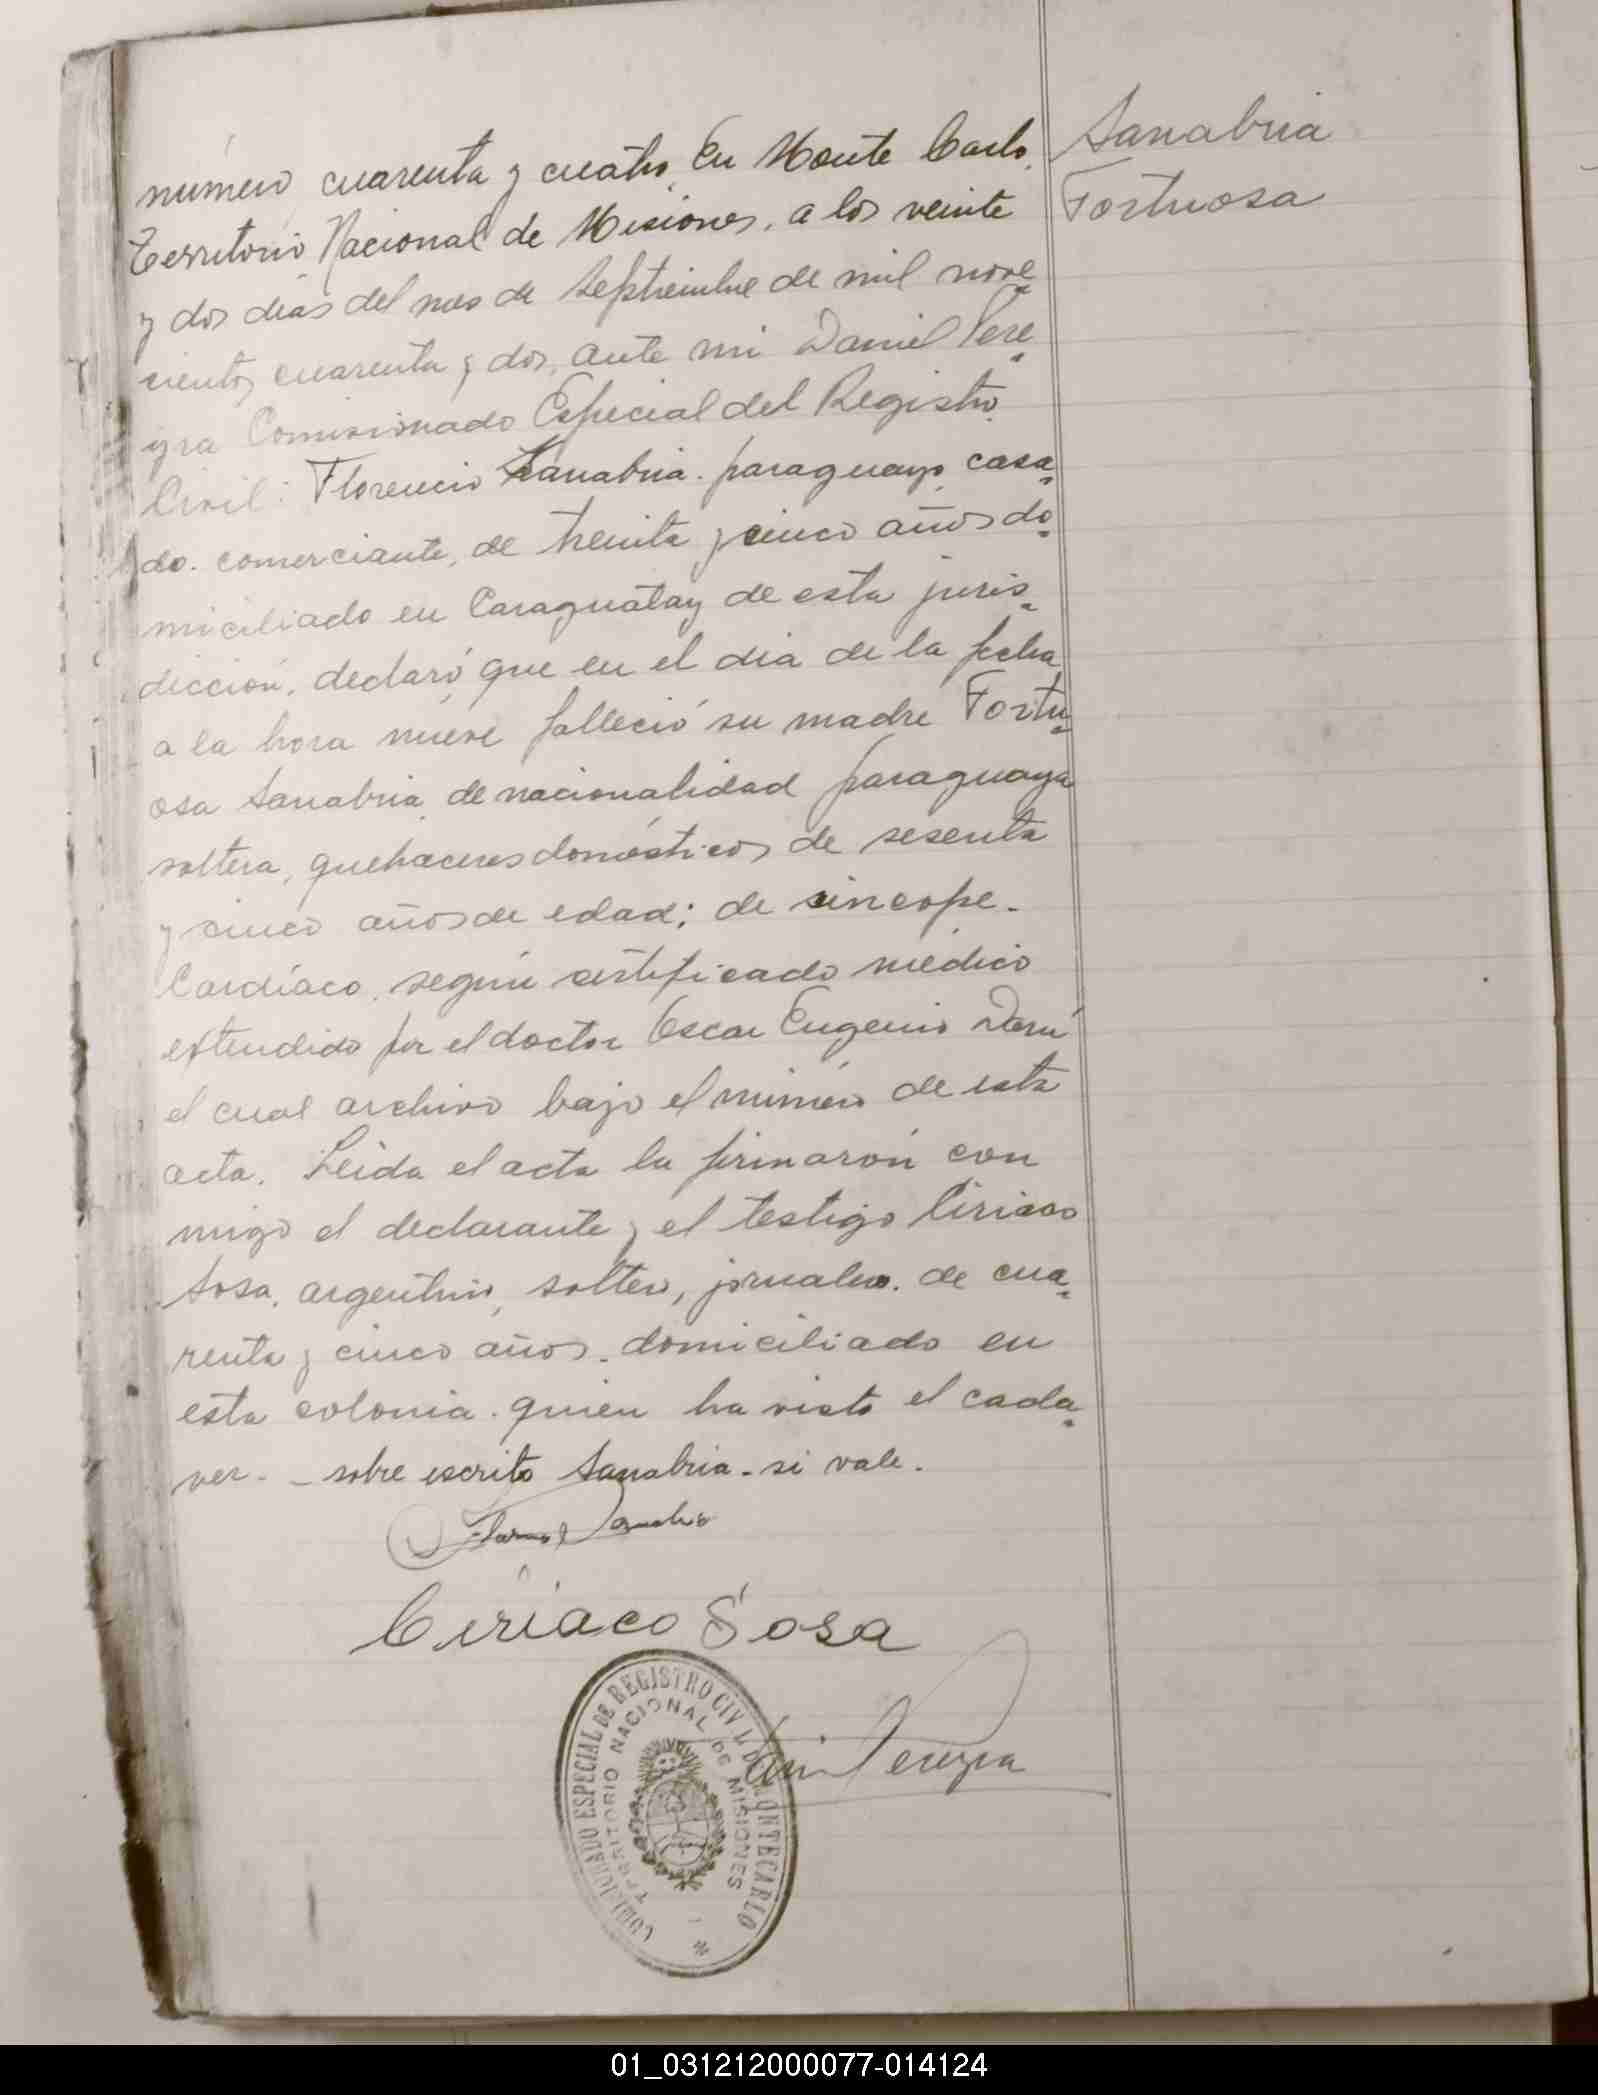 Sanabria
Fortuosa
número cuarenta y cuatro. En Monte Carlo,
Territorio Nacional de Misiones, a los veinte
y dos días del mes de septiembre de mil nove
cientos cuarenta y dos, ante mi Daniel Pere
yra Comisionado Especial del Registro
Civil: Florencio Sanabria. paraguayo, casa
do. comerciante, de treinta y cinco años do
miciliado en Caraguatay de esta juris
dicción, declaró que en el día de la fecha
a la hora nueve falleció su madre Fortu
osa Sanabria, de nacionalidad paraguaya
soltera, quehaceres domésticos de sesenta
y cinco años de edad; de sincope.
Cardíaco, según certificado médico
extendido por el doctor Oscar Eugenio Darú
el cual archivo bajo el número de esta
acta. Leida el acta la firmarón con
migo el declarante y el testigo Ciriaco
Sosa, argentino, soltero, jornalero. de cua
renta y cinco años. domiciliado en
esta colonia. quien ha visto el cada
ver. - sobre escrito Sanabria - si vale.
Ciríaco Sosa
Pereyra
COMISIONADO ESPECIAL DE REGISTRO CIVIL DE MONTECARLO
TERRITORIO NACIONAL DE MISIONES
01_031212000077-014124